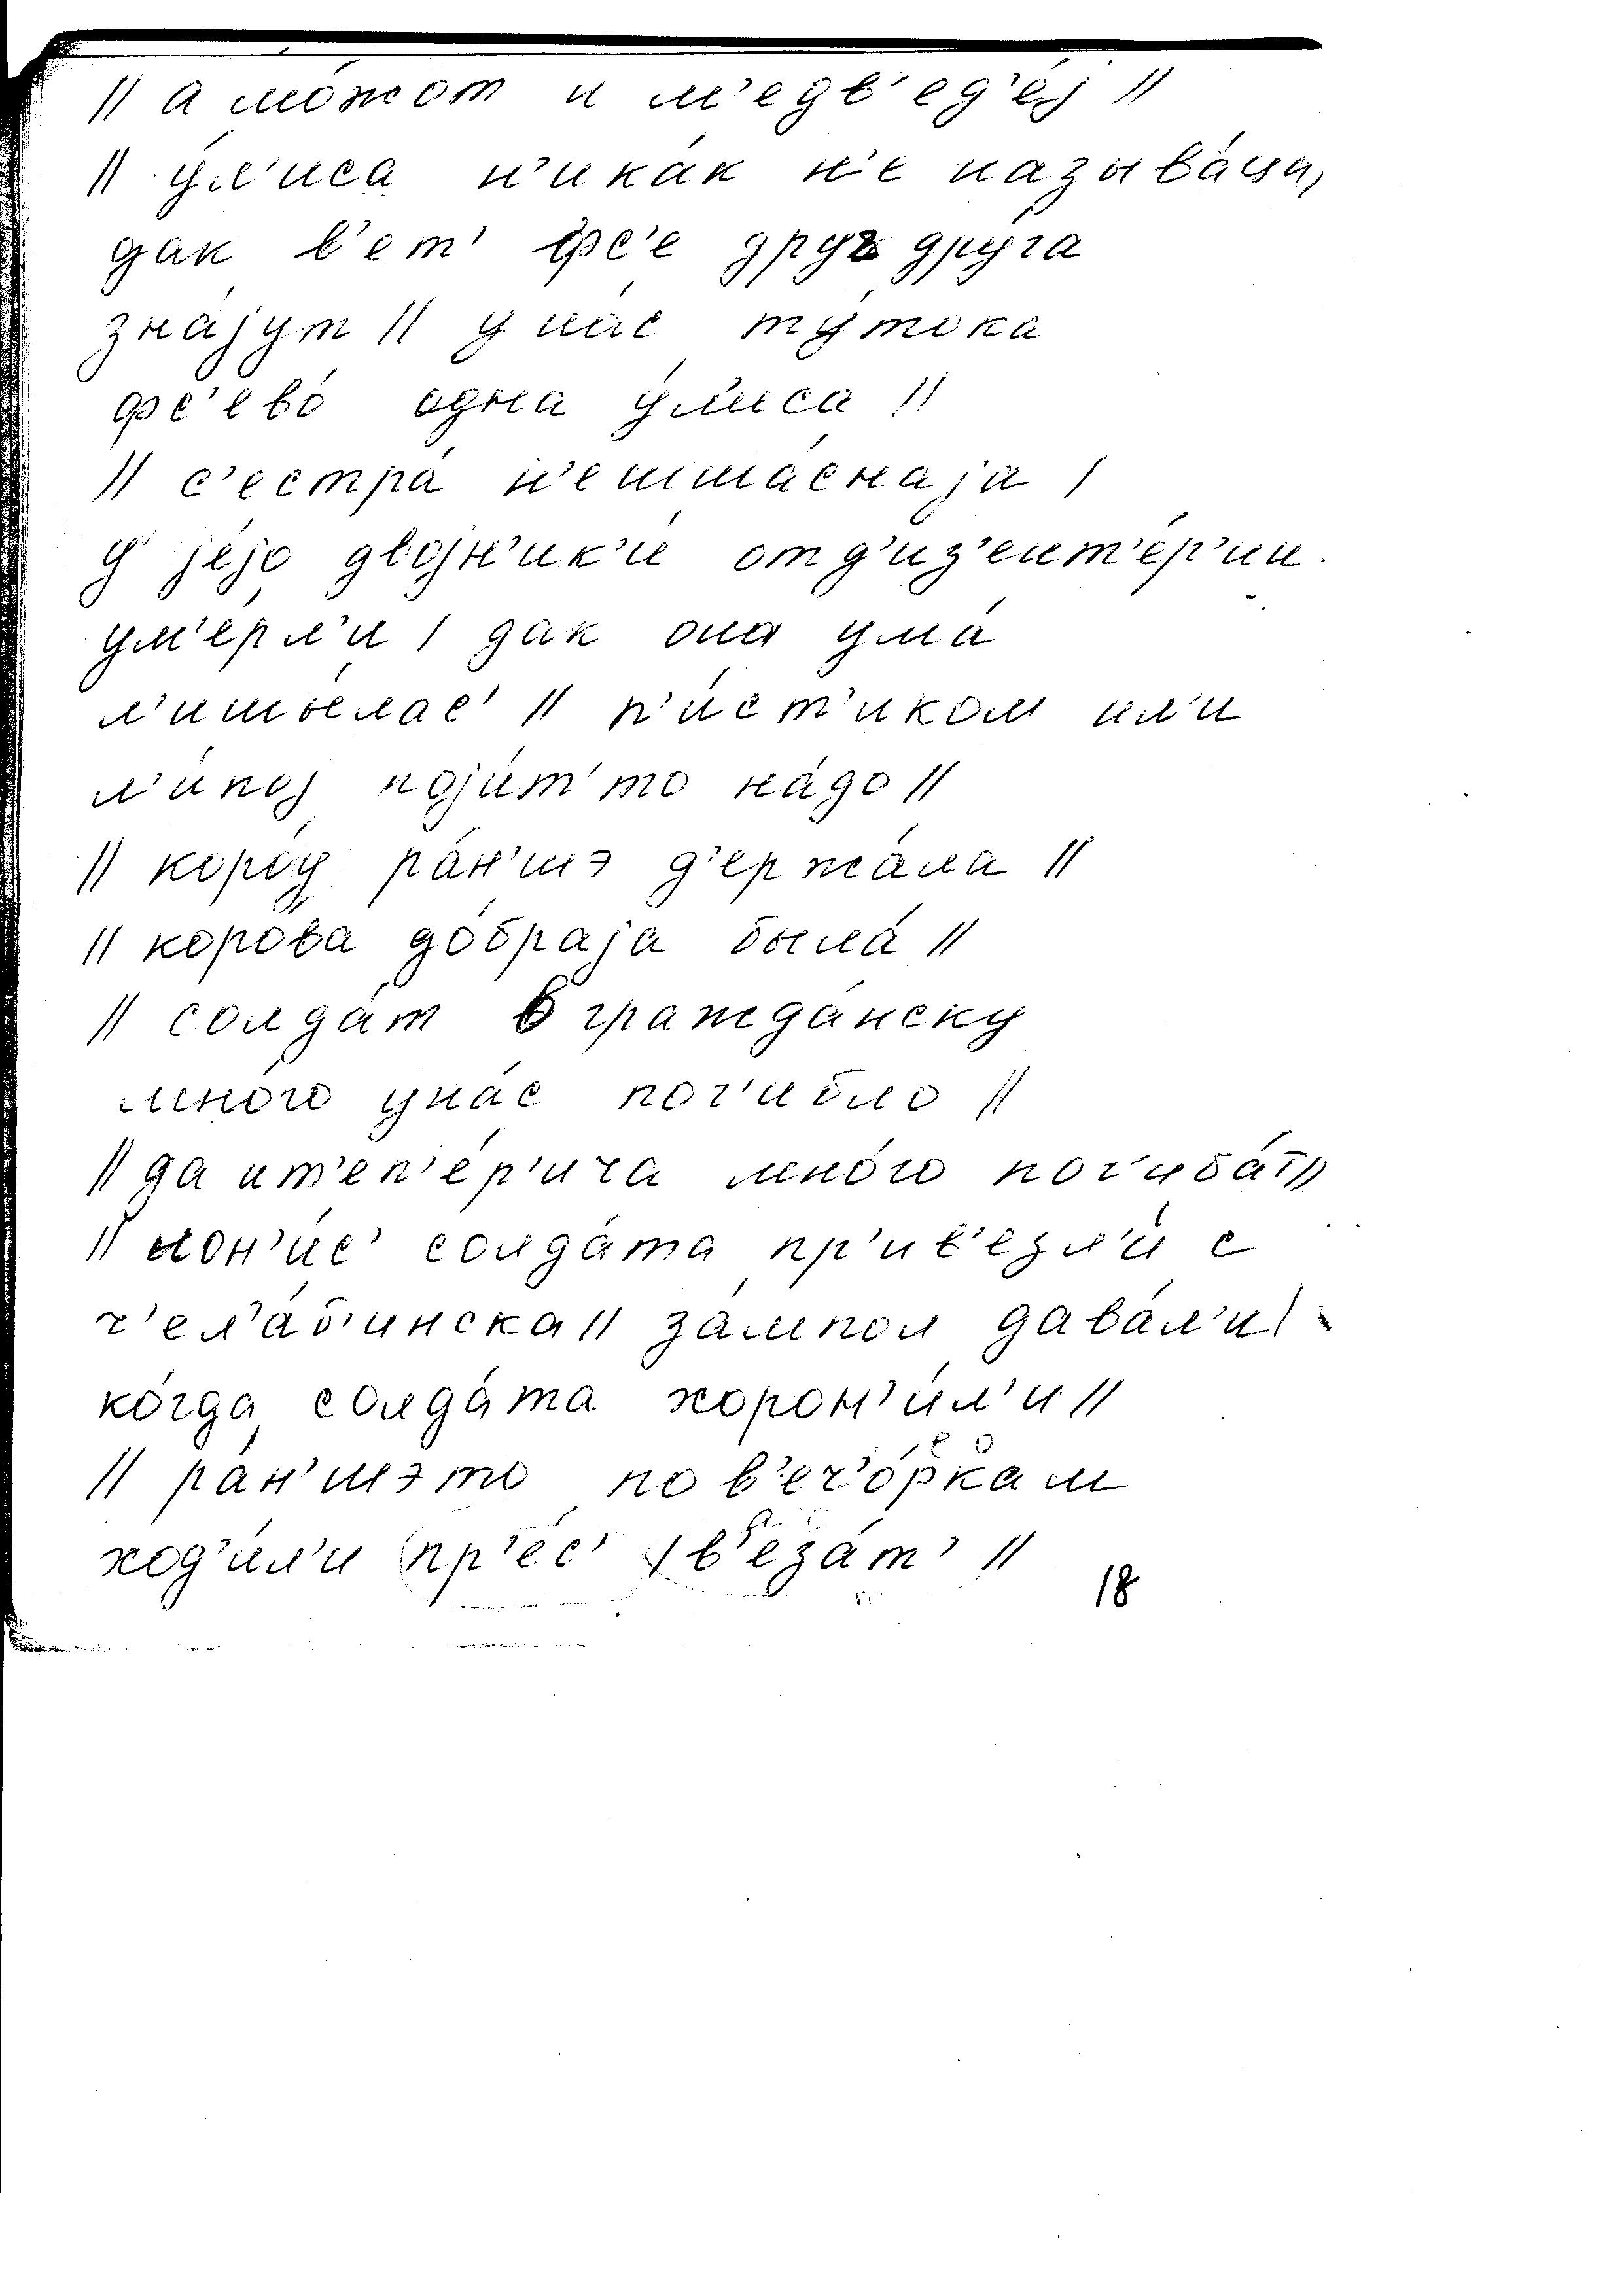 // а мо́жот и м'едв'ед'е́j //
// у́л'иса н'ика́к н'е называ́ца,
дак в'ет' фс'е друг дру́га
зна́jут // у на́с ту́тока
фс'ево́ одна у́л'иса //
// с'естра́ н'ешша́снаjа /
у jejо́ двоjн'ик'и́ от д'из'ент'е́р'ии
ум'е́рл'и / дак она ума́
л'ишы́лас' // п'и́ст'иком ил'и
л'и́поj поjи́т' то на́до //
// коро́ў ра́н'шэ д'ержа́ла //
// коро́ва до́браjа была́ //
// солда́т в гражда́нску
мно́го у на́с пог'ибло //
// да ит'еп'е́р'ича мно́го пог'иба́т //
// лон'и́с' солда́та пр'ив'езл'и́ с
ч'ел'а́б'инска // за́лпом дава́л'и /
ко́гда солда́та хорон'и́л'и //
// ра́н'шэ то по в'еч'о́ркам
ход'и́л'и пр'ес' / в'еза́т' //
18